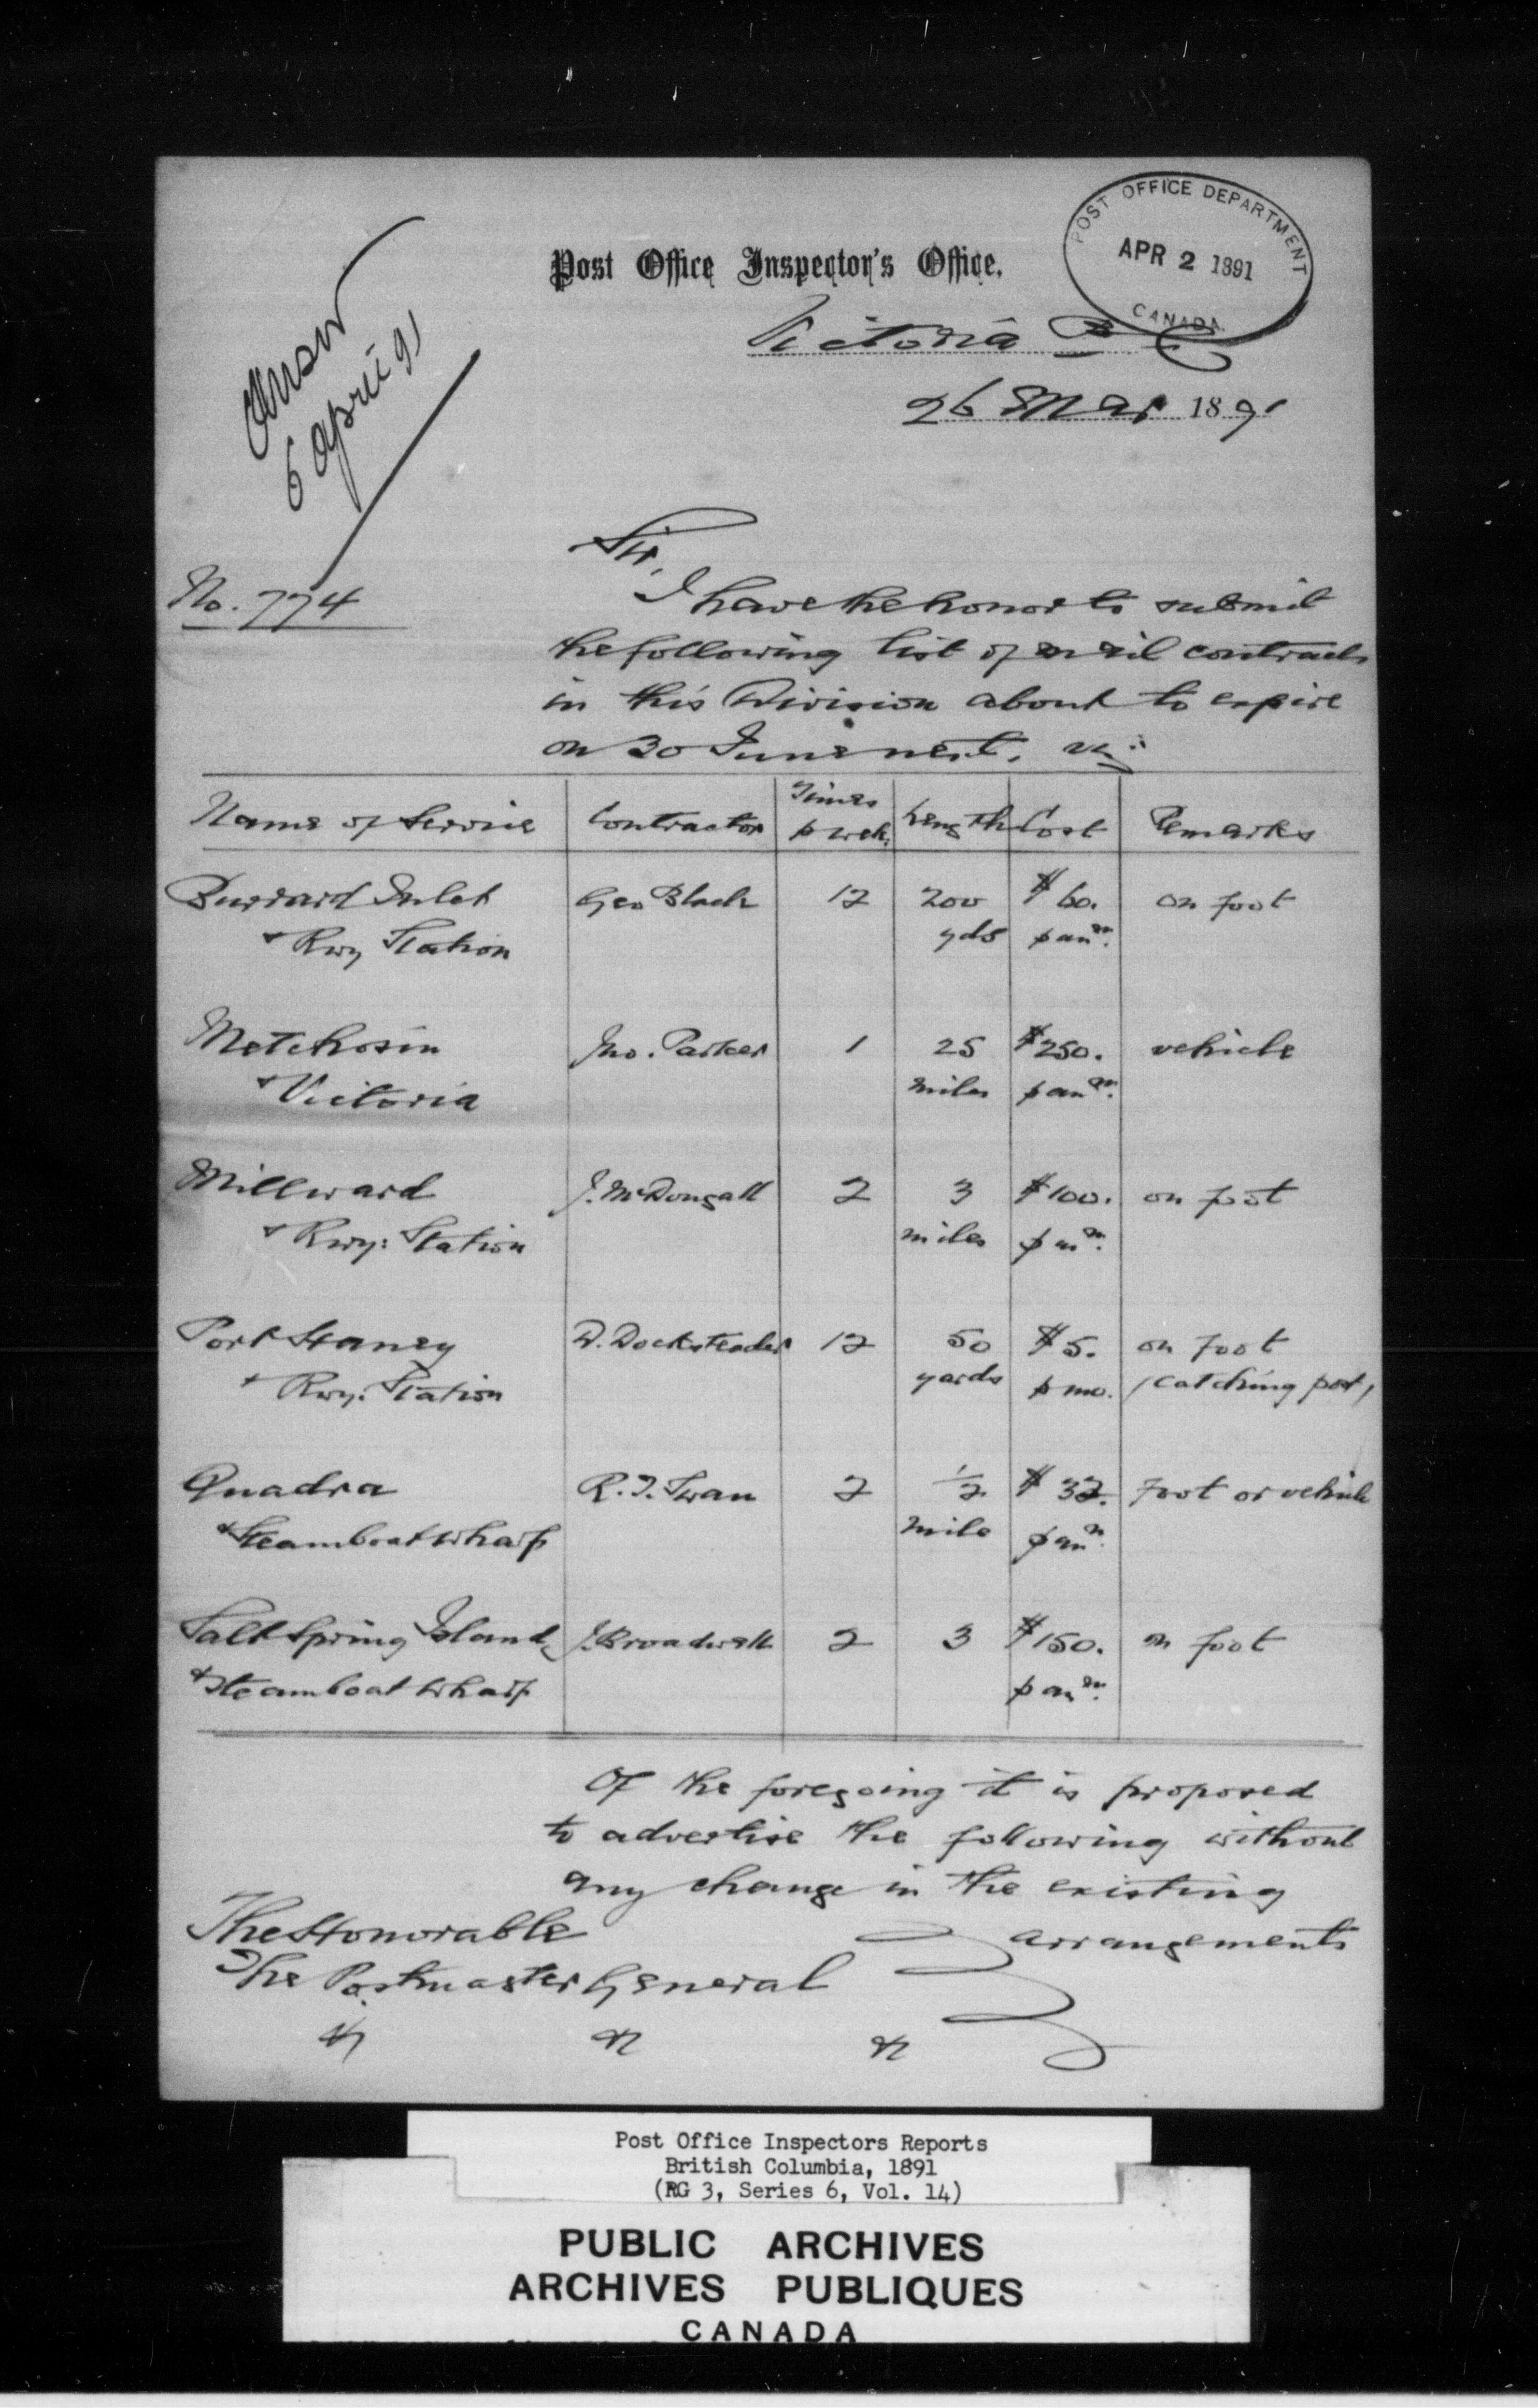 POST OFFICE DEPARTMENT
APR 2 1891
CANADA
Post Office Inspector's Office.
Victoria B C
26 Mar 1891
Answd
6 April 91
No. 774
Sir,
I have the honor to submit
the following list of mail contracts
in this Division about to expire
on 30 June next, viz:
Name of Service Contractor Times p week Length Cost Remarks
Burrard Inlet Geo Black 12 200 $60. on foot
& Rwy Station yds p anm.
Metchosin Jno. Parker 1 25 $250. vehicle
& Victoria miles p anm.
Millward J. McDougall 2 3 $100. on foot
& Rwy: Station miles p anm.
Port Haney D. Docksteader 12 50 $5. on foot
& Rwy: Station yards p mo. (catching post)
Quadra R. T. Swan 2 1/2 $32. foot or vehicle
& Steamboat Wharf mile p ann.
Salt Spring Island J. Broadwell 2 3 $150. on foot
& Steamboat Wharf p anm.
Of the foregoing it is proposed
to advertise the following without
any change in the existing
arrangements
The Honorable
The Postmaster General
&c &c &c
Post Office Inspectors Reports
British Columbia, 1891
(RG 3, Series 6, Vol. 14)
PUBLIC ARCHIVES
ARCHIVES PUBLIQUES
CANADA